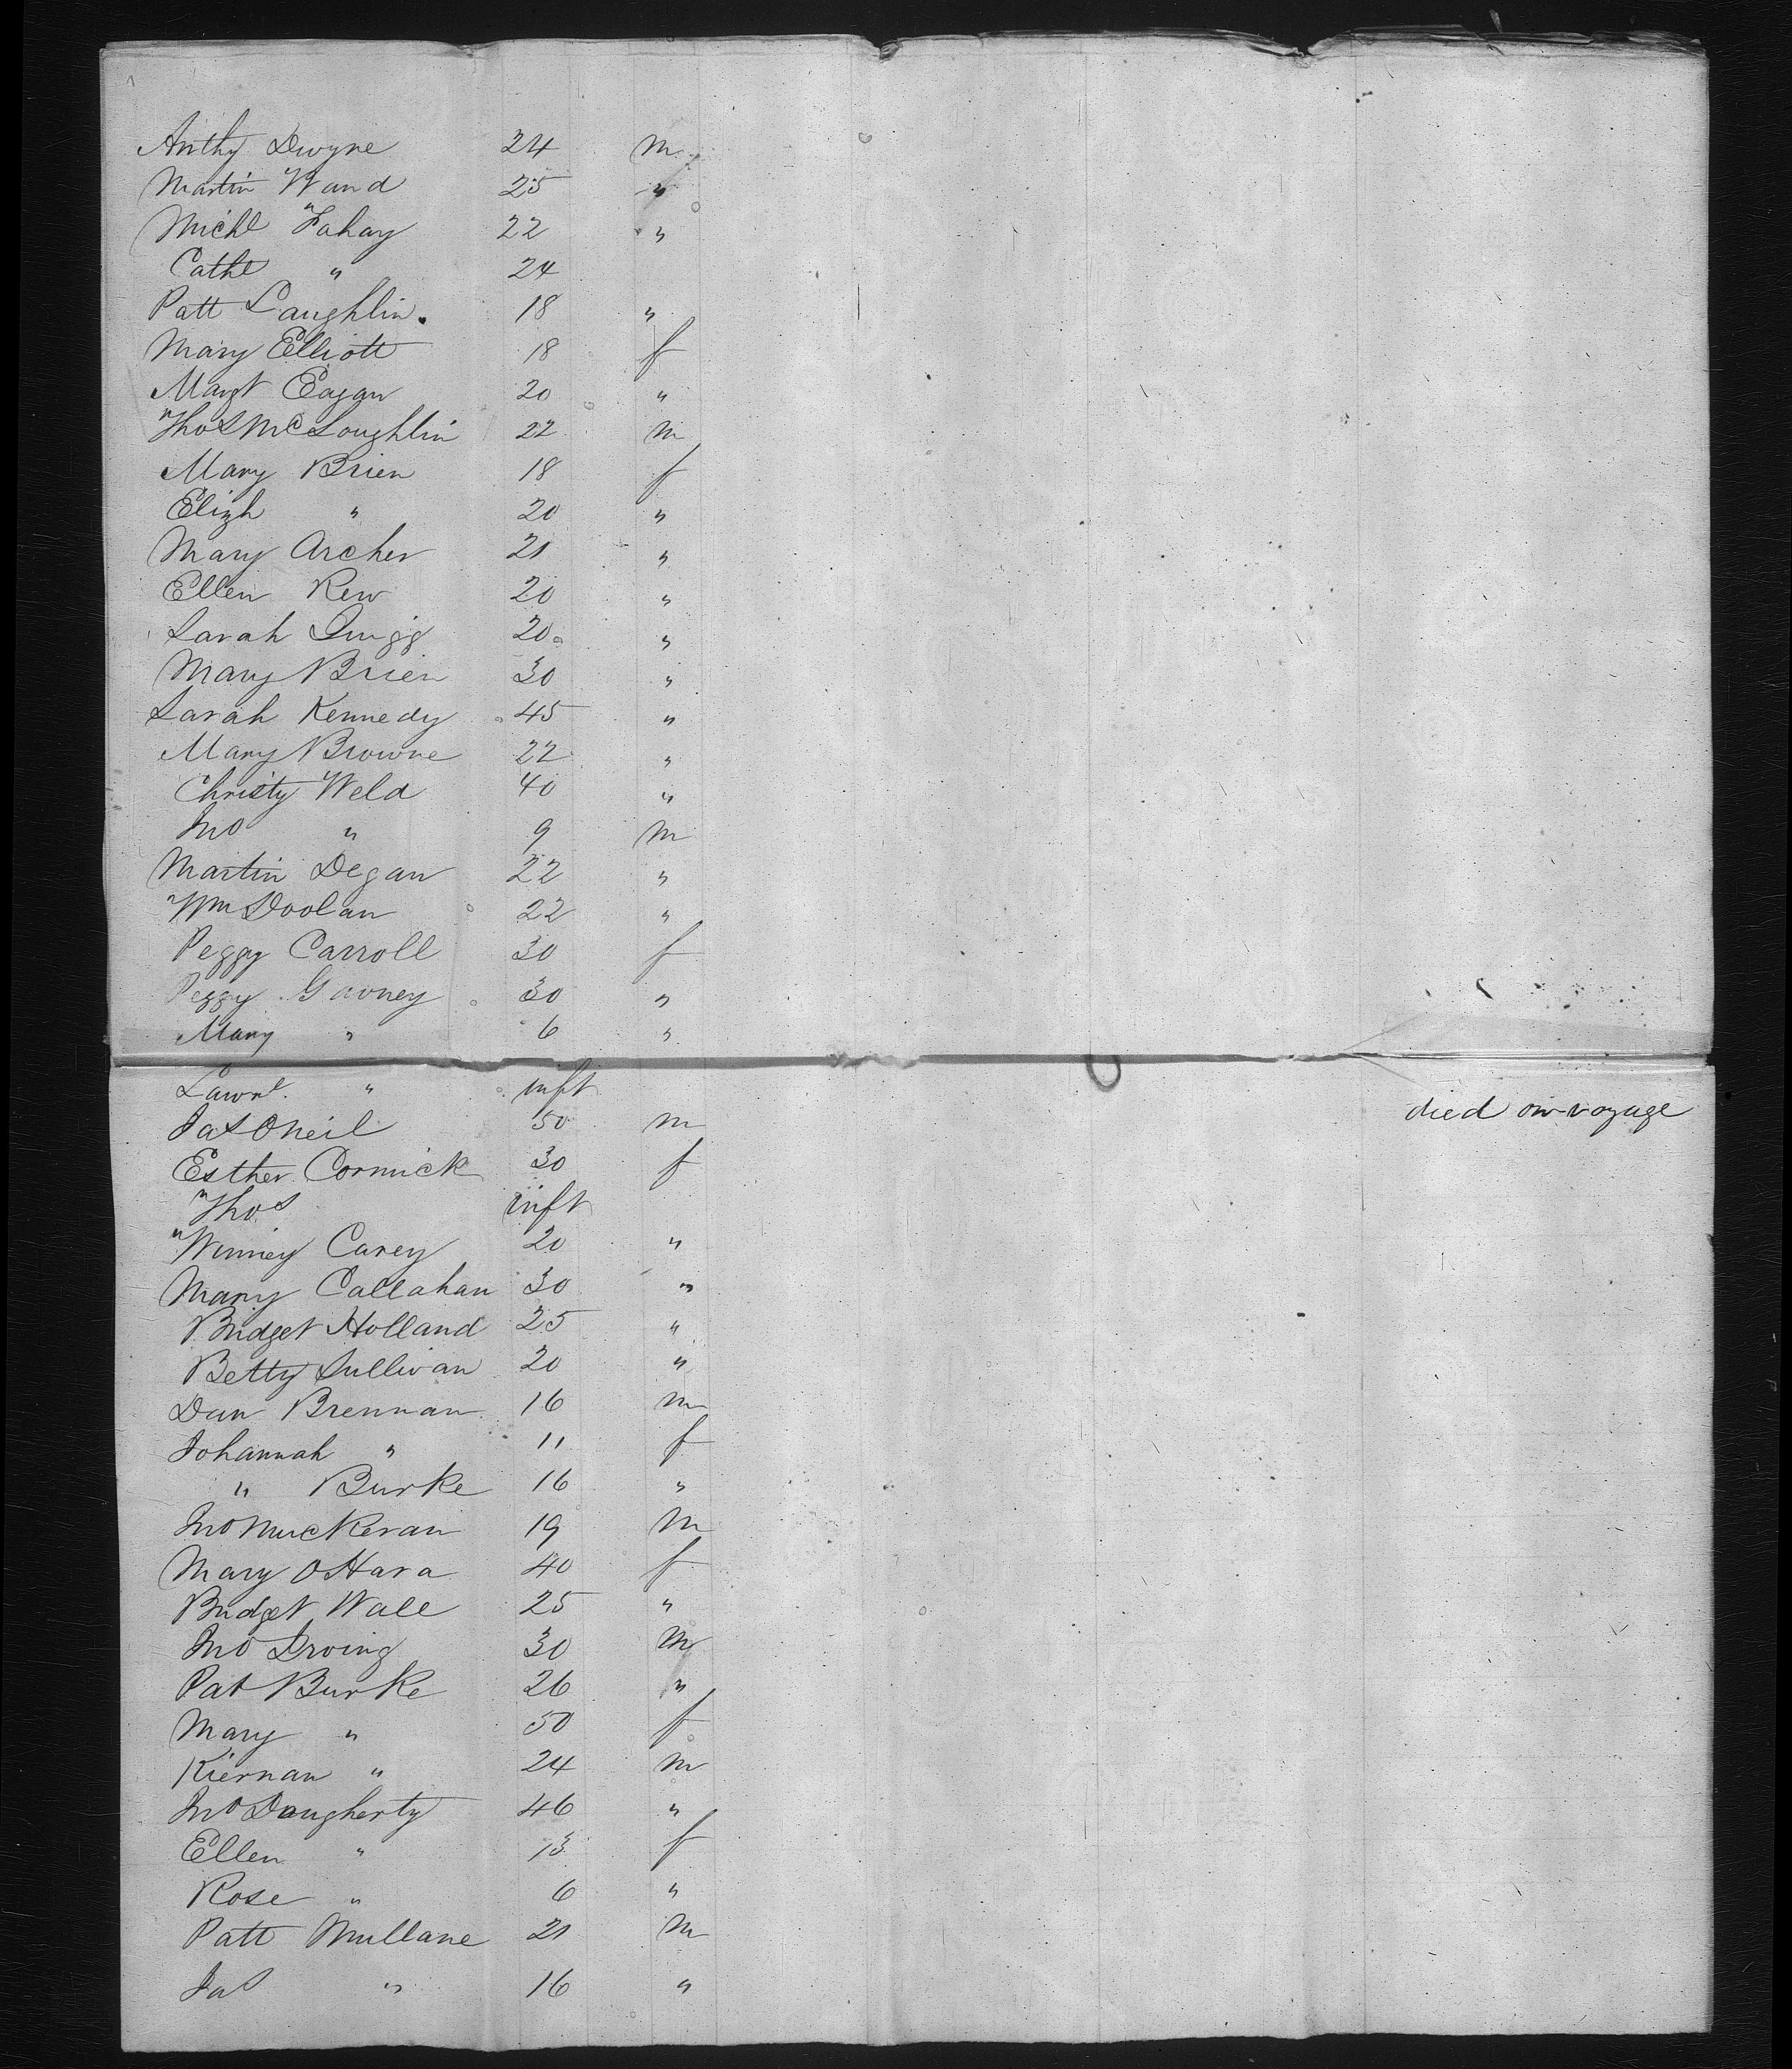 Anthy Dwyne 24 m
Martin Ward 25 "
Michl Fahay 22 "
Cathe " 24
Patt Laughlin. 18 "
Mary Elliott 18 f
Margt Eagan 20 "
Thos McLoughlin 22 m
Mary Brien 18 f
Elizh " 20 "
Mary Archer 21 "
Ellen Rew 20 "
Sarah Quigg 20 "
Mary Brien 30 "
Sarah Kennedy 45 "
Mary Browne 22 "
Christy Weld 40 "
Jno " 9 m
Martin Degan 22 "
Wm Doolan 22 "
Peggy Carroll 30 f
Peggy Gavney 30 "
Mary " 6 "
Lawre. " inft
Jas ONeil 50 m died on voyage
Esther Cormick 30 f
Thos inft
Winney Carey 20 "
Mary Callahan 30 "
Bridget Holland 25 "
Betty Sullivan 20 "
Dan Brennan 16 m
Johannah " 11 f
" Burke 16 "
Jno MucKeran 19 m
Mary OHara 40 f
Bridget Wall 25 "
Jno Irving 30 m
Pat Burke 26 "
Mary " 50 f
Kiernan " 24 m
Jno Daugherty 46 "
Ellen " 13 f
Rose " 6 "
Patt Mullane 21 m
Jas " 16 "